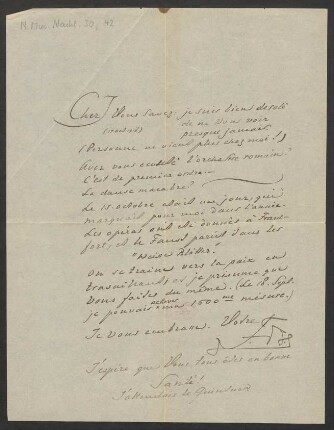 N. Mus. Nachl. 30, 42
Cher J Vous savez je suis biens desolé
de ne Vous voir
presque jamais.
(Personne ne vient plus chez moi!)
Avez vous l'orchestre romain?
C'est de premier ordre.
La danse macabre?
Le 15. octobre etait un jour, qui
marquait pour moi dans l'année.
Les opéras ont eté donnés à Franc-
fort, et le Faust parait dans les
"Weisse Blätter".
On se traine vers la paix en
travaillant et je présume que
Vous faites du même. (Le 18. Sept.
je mesure.)
Je vous embrasse. Votre
J'espère que Vous tous êtes en bonne
Santé!
J'attendais le